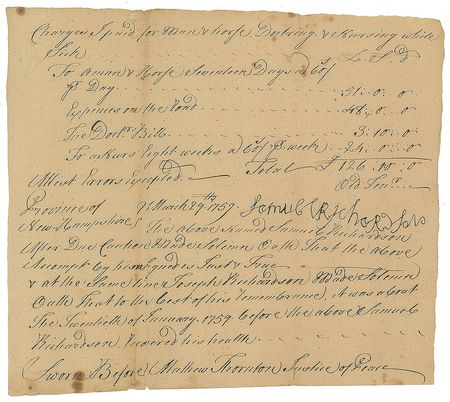 Charges I paid for Man & horse, Doctring, & Nursing while
Sick
L S d
To a man & Horse Seventeen Days a 60/
pr Day 51 .. 0 .. 0
Expences on the Road 48 .. 0 .. 0
The Doctrs Bill 3 .. 10 .. 0
To a Nurs Eight weeks a 60/ pr week 24 .. 0 .. 0
Total £ 126 .. 10 .. 0
Attest Errors Excepted Old Tenr
Province of March 29th 1759. Samuel Richardson
New Hampshire The above Named Samuel Richardson
After Due Caution Made Solemn Oath That the above
Accompt by him Signed is Just & True
& at the Same time Joseph Richardson Made Solemn
Oath That to the best of his Remembrance, it was about
The Twentieth of January 1759 before the above Samuel
Richardson, Recovered his health
Sworn Before Mathew Thornton Justice of Peace